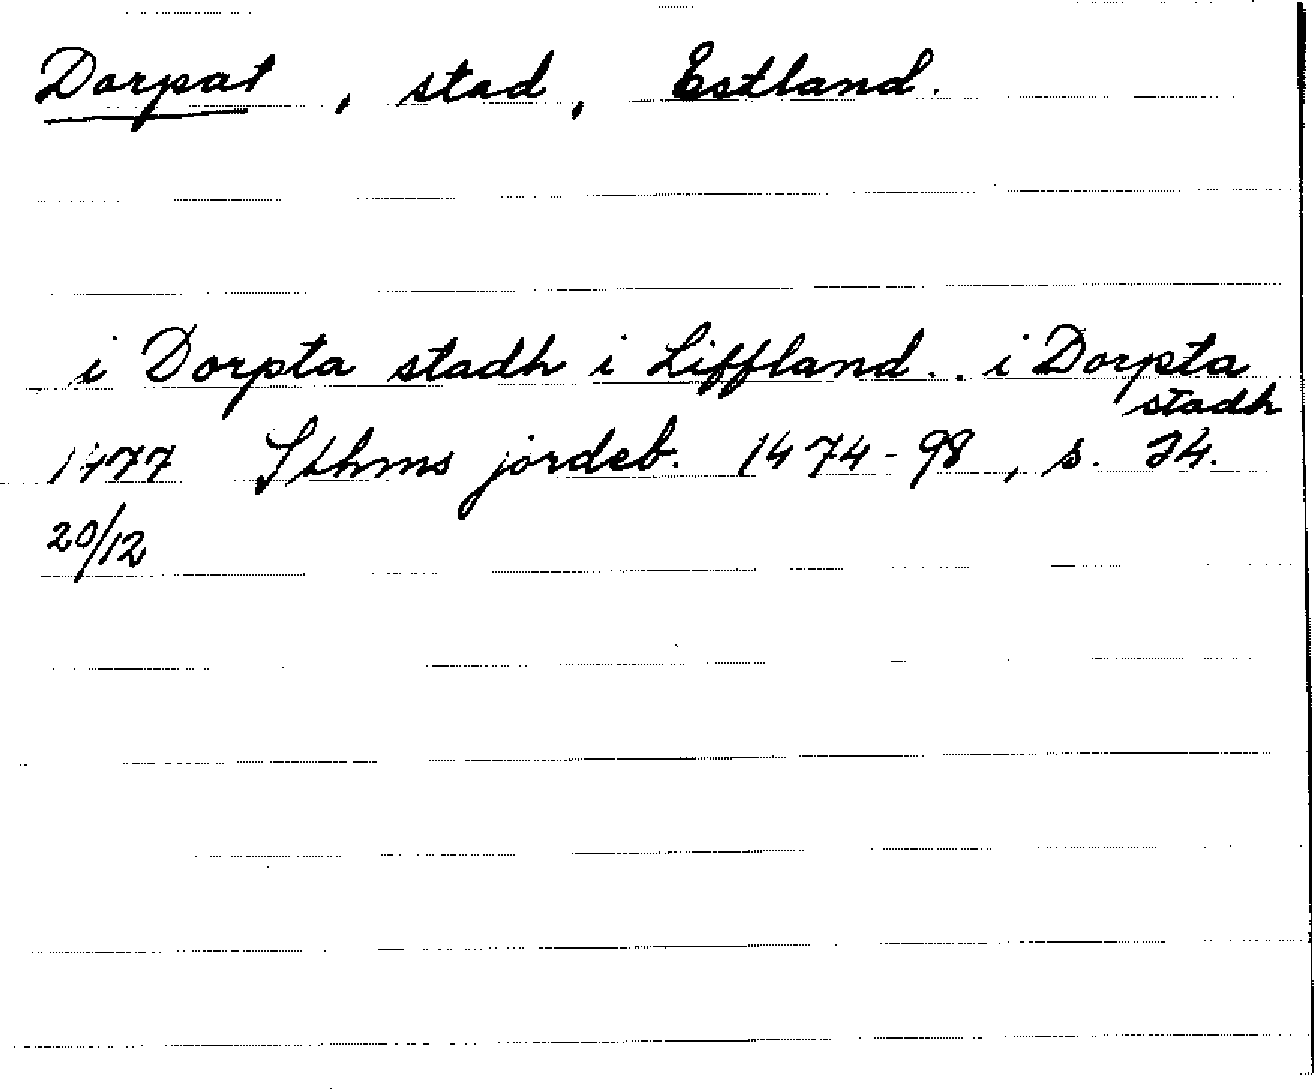 Dorpat, stad, Estland.
i Dorpta stadh i Liffland.. i Dorpta
stadh
1477 Sthms jordeb. 1474-98, s. 74.
20/12